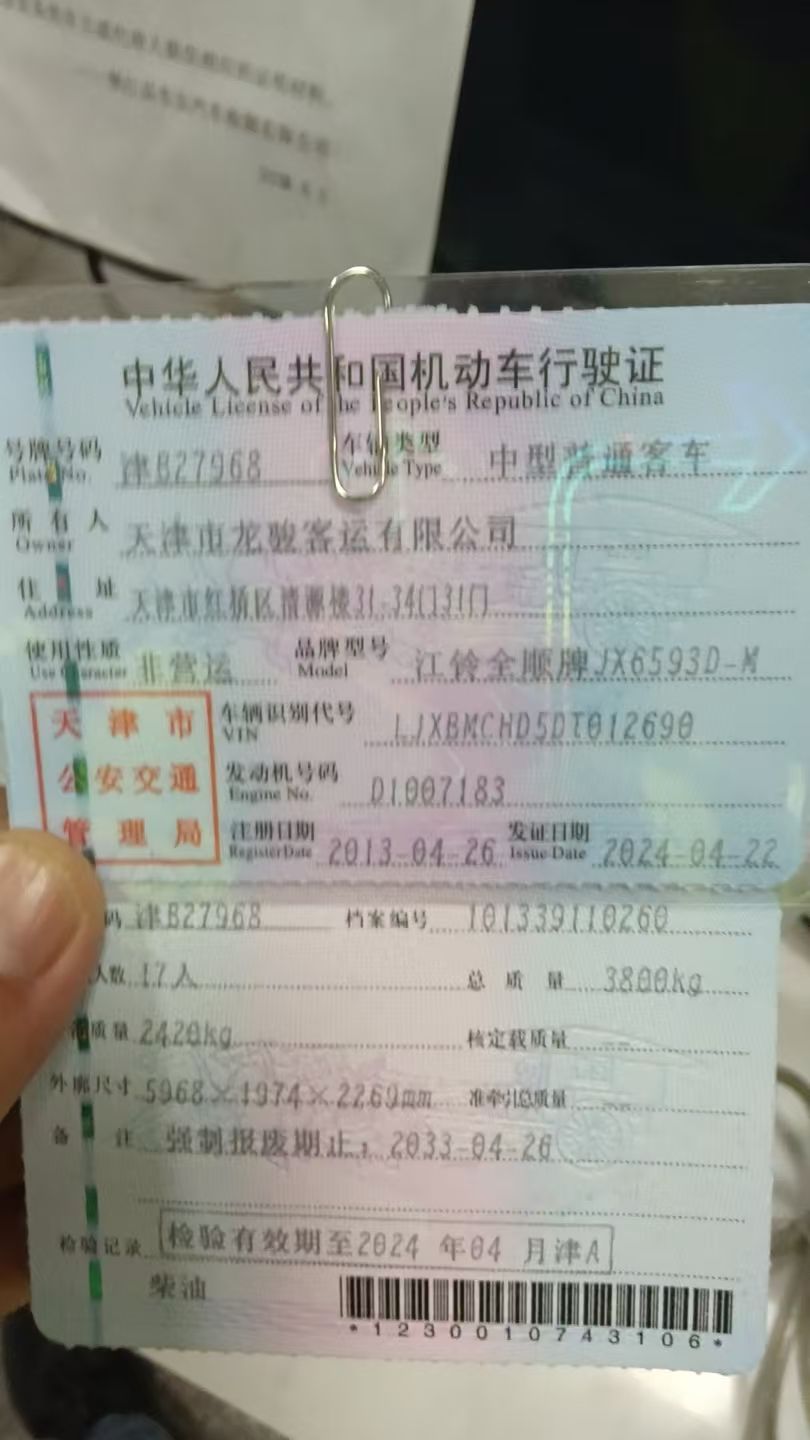 中华人民共和国机动车行驶证
Vehicle License of the People's Republic of China
号牌号码 津B27968 车辆类型 中型普通客车
Plate No. Vehicle Type
所有人 天津市龙骏客运有限公司
Owner
住址 天津市红桥区清源楼31-34门31门
Address
使用性质 非营运 品牌型号 江铃全顺牌JX6593D-M
Use Character Model
天津市
公安交通
管理局
车辆识别代号 LJXBMCHD5DT012690
VIN
发动机号码 D1007183
Engine No.
注册日期 2013-04-26 发证日期 2024-04-22
Register Date Issue Date
码 津B27968 档案编号 101339110260
人数 17人 总质量 3800kg
质量 2420kg 核定载质量 --
外廓尺寸 5968×1974×2269mm 准牵引总质量 --
备注 强制报废期止：2033-04-26
检验记录 检验有效期至2024年04月津A
柴油
*1230010743106*